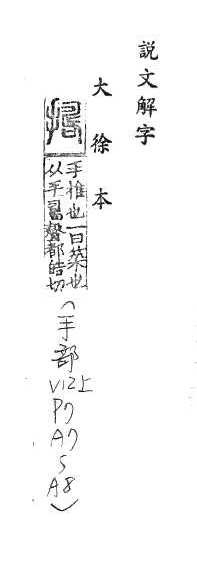 説文解字
大徐本
手推也一曰築也
从手𠷎聲都皓切
(手部
V12上
P7
A7
5
A8)